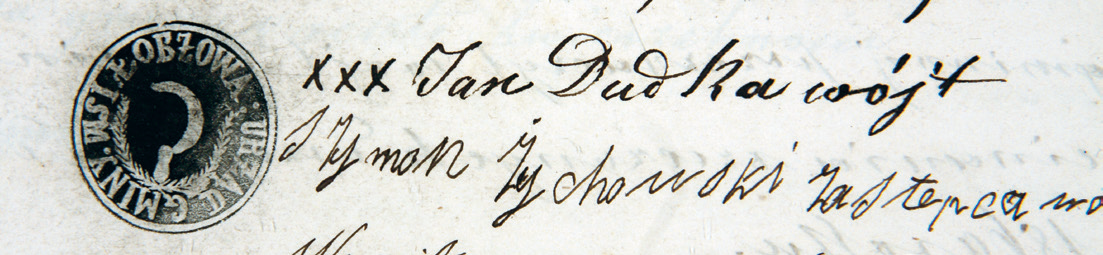 URZĄD GMINY. WSI ŁOBZOWA.
xxx Jan Dudka wójt
Szymon Żychowski zastepca